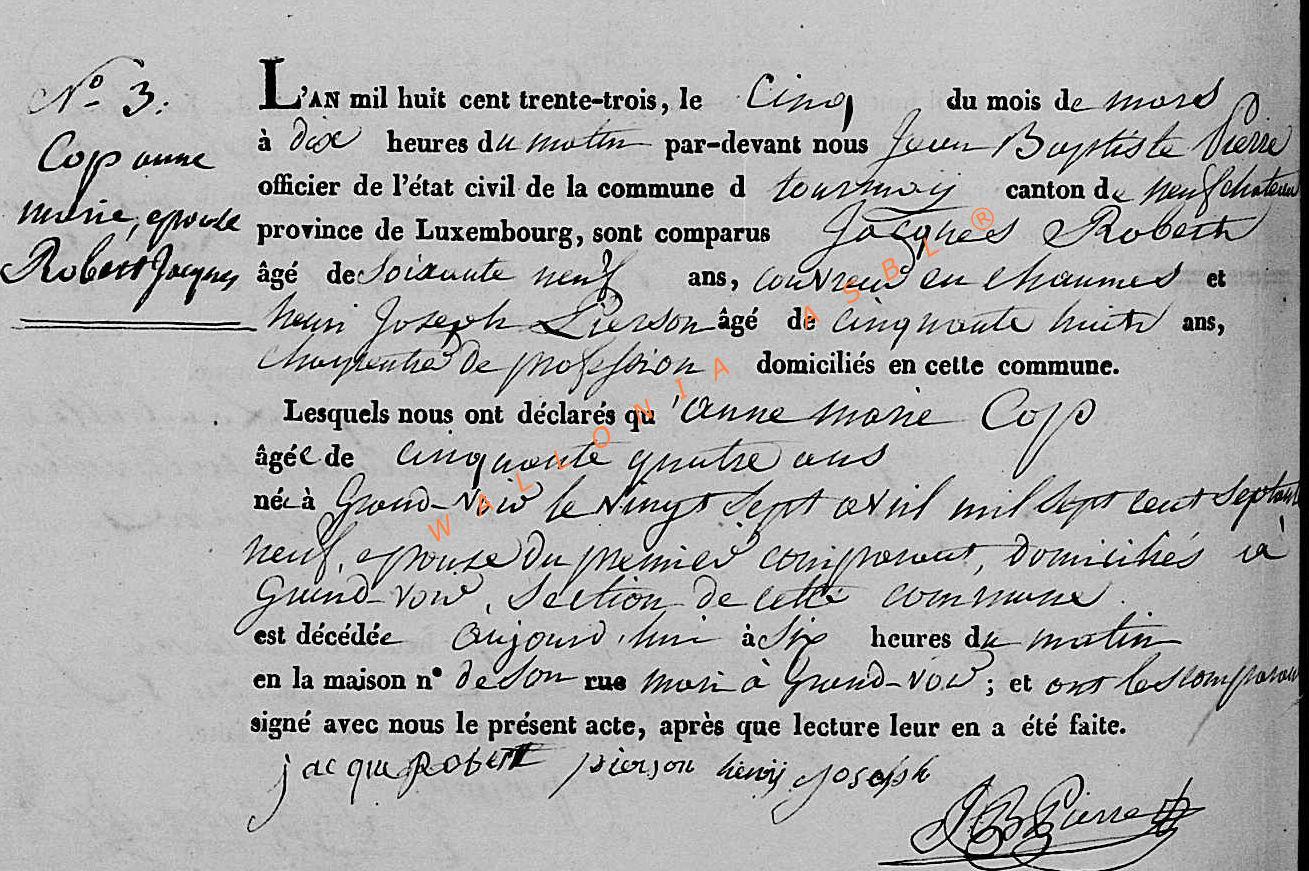 N° 3.
Cop anne
marie, epouse
Robert Jacques
L'AN mil huit cent trente-trois, le Cinq du mois de mars
à dix heures du matin par-devant nous Jean Baptiste Pierre
officier de l'état civil de la commune d tournay canton de neufchateau
province de Luxembourg, sont comparus Jacques Robert
âgé de Soixante neuf ans, couvreur en chaumes et
henri Joseph Pierson âgé de cinquante huit ans,
charpentier de profession domiciliés en cette commune.
Lesquels nous ont déclarés qu'anne marie Cop
âgée de cinquante quatre ans
née à Grand-Voir le vingt sept avril mil sept cent septante
neuf, epouse du premier comparant, domiciliés à
Grand-voir, Section de cette commune.
est décédée aujourd'hui à six heures du matin
en la maison n° de son rue mari à Grand-Voir ; et ont les comparants
signé avec nous le présent acte, après que lecture leur en a été faite.
jacque Robert pierson henrij joseph
J B Pierre
WALLONIA ASBL ®